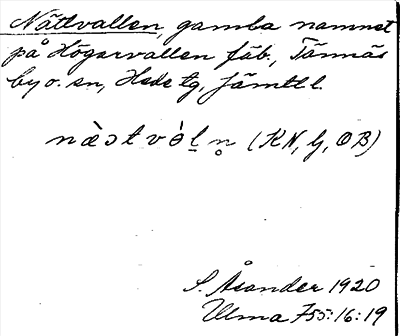 Nättvallen, gamba namnet
på Högarvallen fäb., Tännäs
by o. sn, Hede tg, Jämtl l.
næ̀ɔtvə̀ḻn̥ (KN, G, OB)
S. Åsander 1920
Ulma 755:16:19